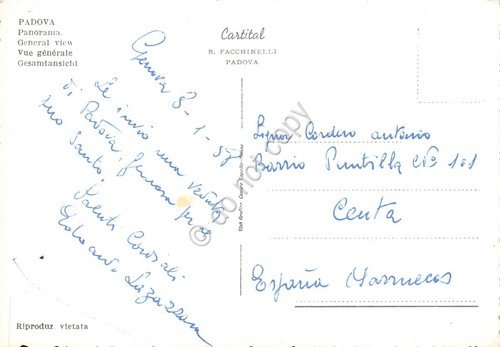 PADOVA
Panorama.
General view
Vue générale
Gesamtansicht
Cartital
S. FACCHINELLI
PADOVA
Genova 8-1-57
Le invio una veduta
di Padova, famosa per
suo Santo.
Saluti Cordiali
Edoardo
Signor Cordero antonio
Barrio Puntilla 101
Ceuta
España Marruecos
Riproduz vietata
do not copy